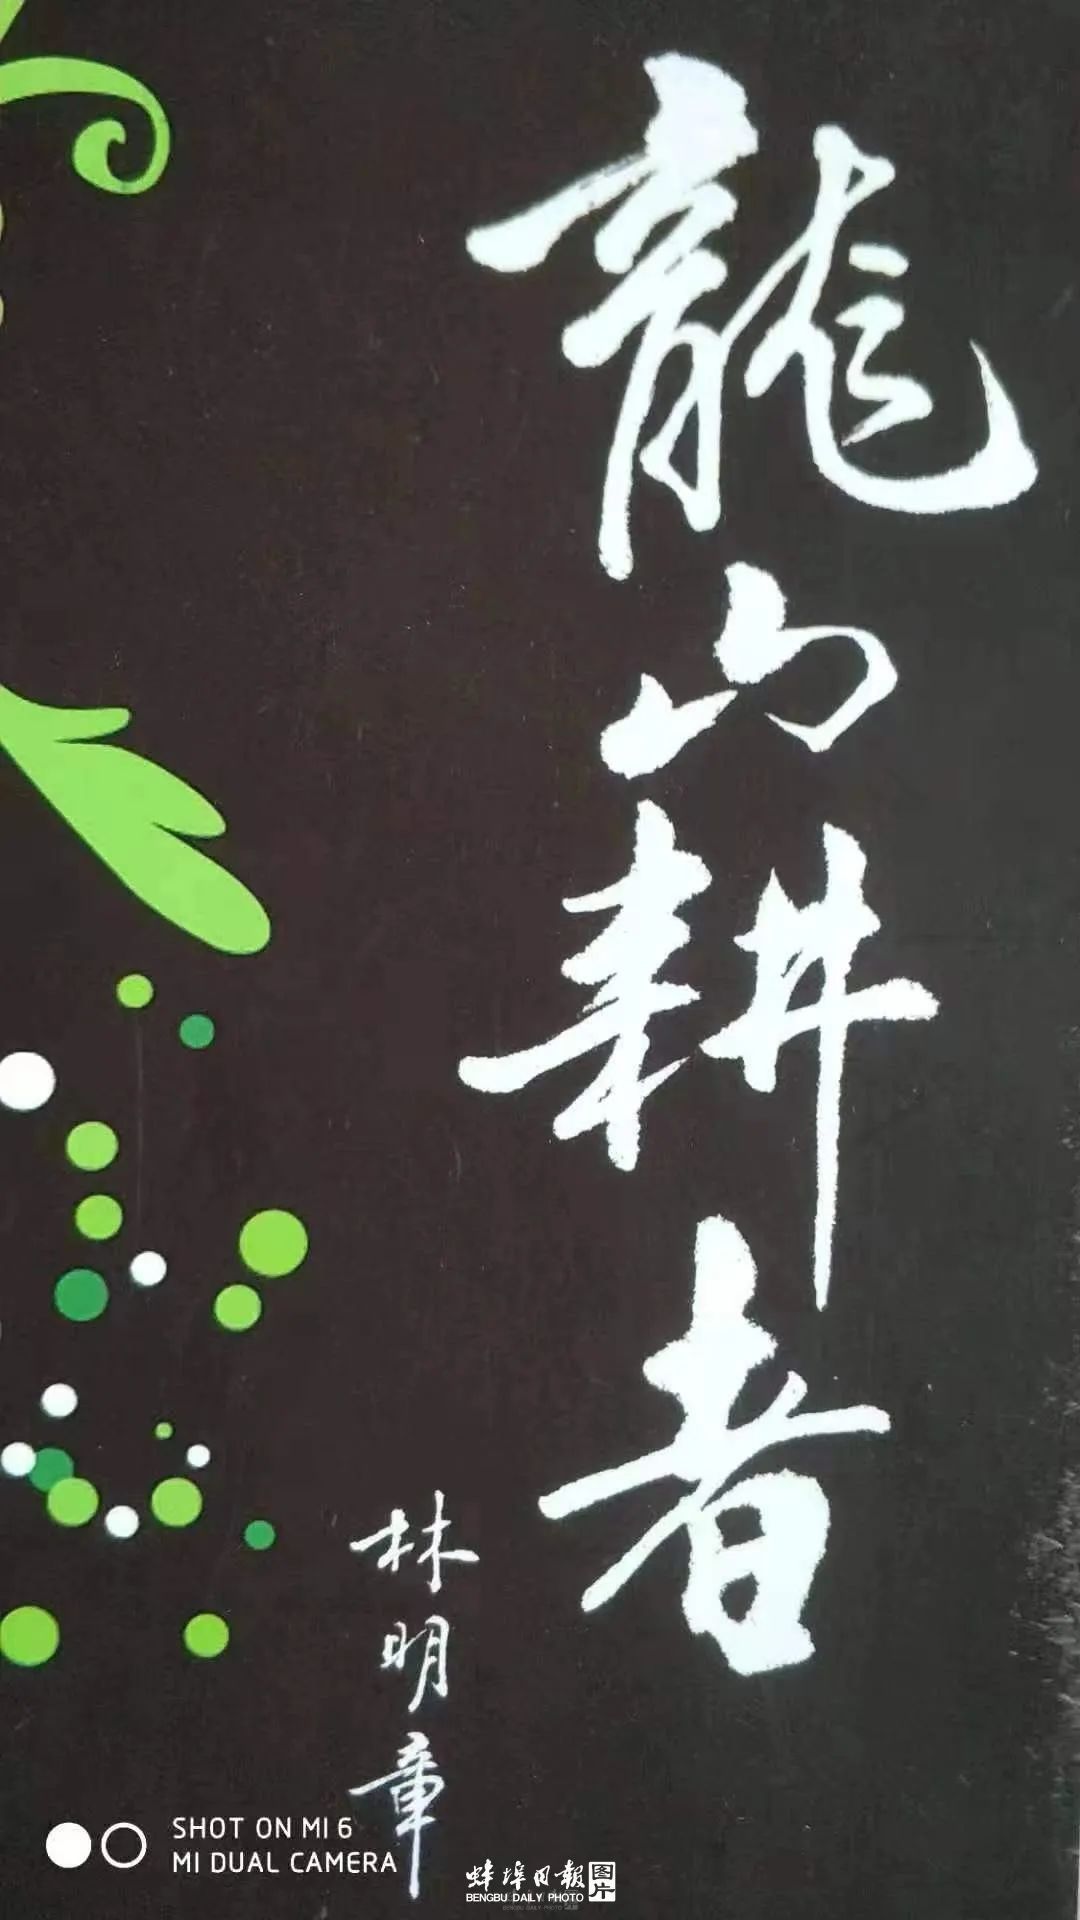 龍山耕者
林明章
SHOT ON MI 6
MI DUAL CAMERA
蚌埠日報 图片
BENGBU DAILY PHOTO